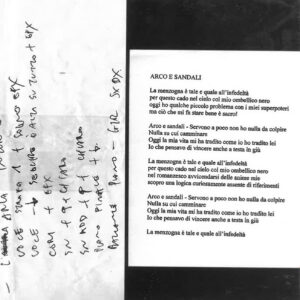 VOCE
VOCE → SU TUTTO + EPX
CORI + EPX
SN +
SN ADD +
PIANO FINALE +
PIANO - GTR SX DX
ARCO E SANDALI
La menzogna è tale e quale all'infedeltà
per questo cado nel cielo col mio ombellico nero
oggi ho qualche piccolo problema con i miei superpoteri
ma ciò che mi fa stare bene è sacro!
Arco e sandali - Servono a poco non ho nulla da colpire
Nulla su cui camminare
Oggi la mia vita mi ha tradito come io ho tradito lei
Io che pensavo di vincere anche a testa in giù
La menzogna è tale e quale all'infedeltà
per questo cado nel cielo col mio ombellico nero
nel romanzesco avvicendarsi delle anime mie
scopro una logica curiosamente assente di riferimenti
Arco e sandali - Servono a poco non ho nulla da colpire
Nulla su cui camminare
Oggi la mia vita mi ha tradito come io ho tradito lei
Io che pensavo di vincere anche a testa in giù
La menzogna è tale e quale all'infedeltà